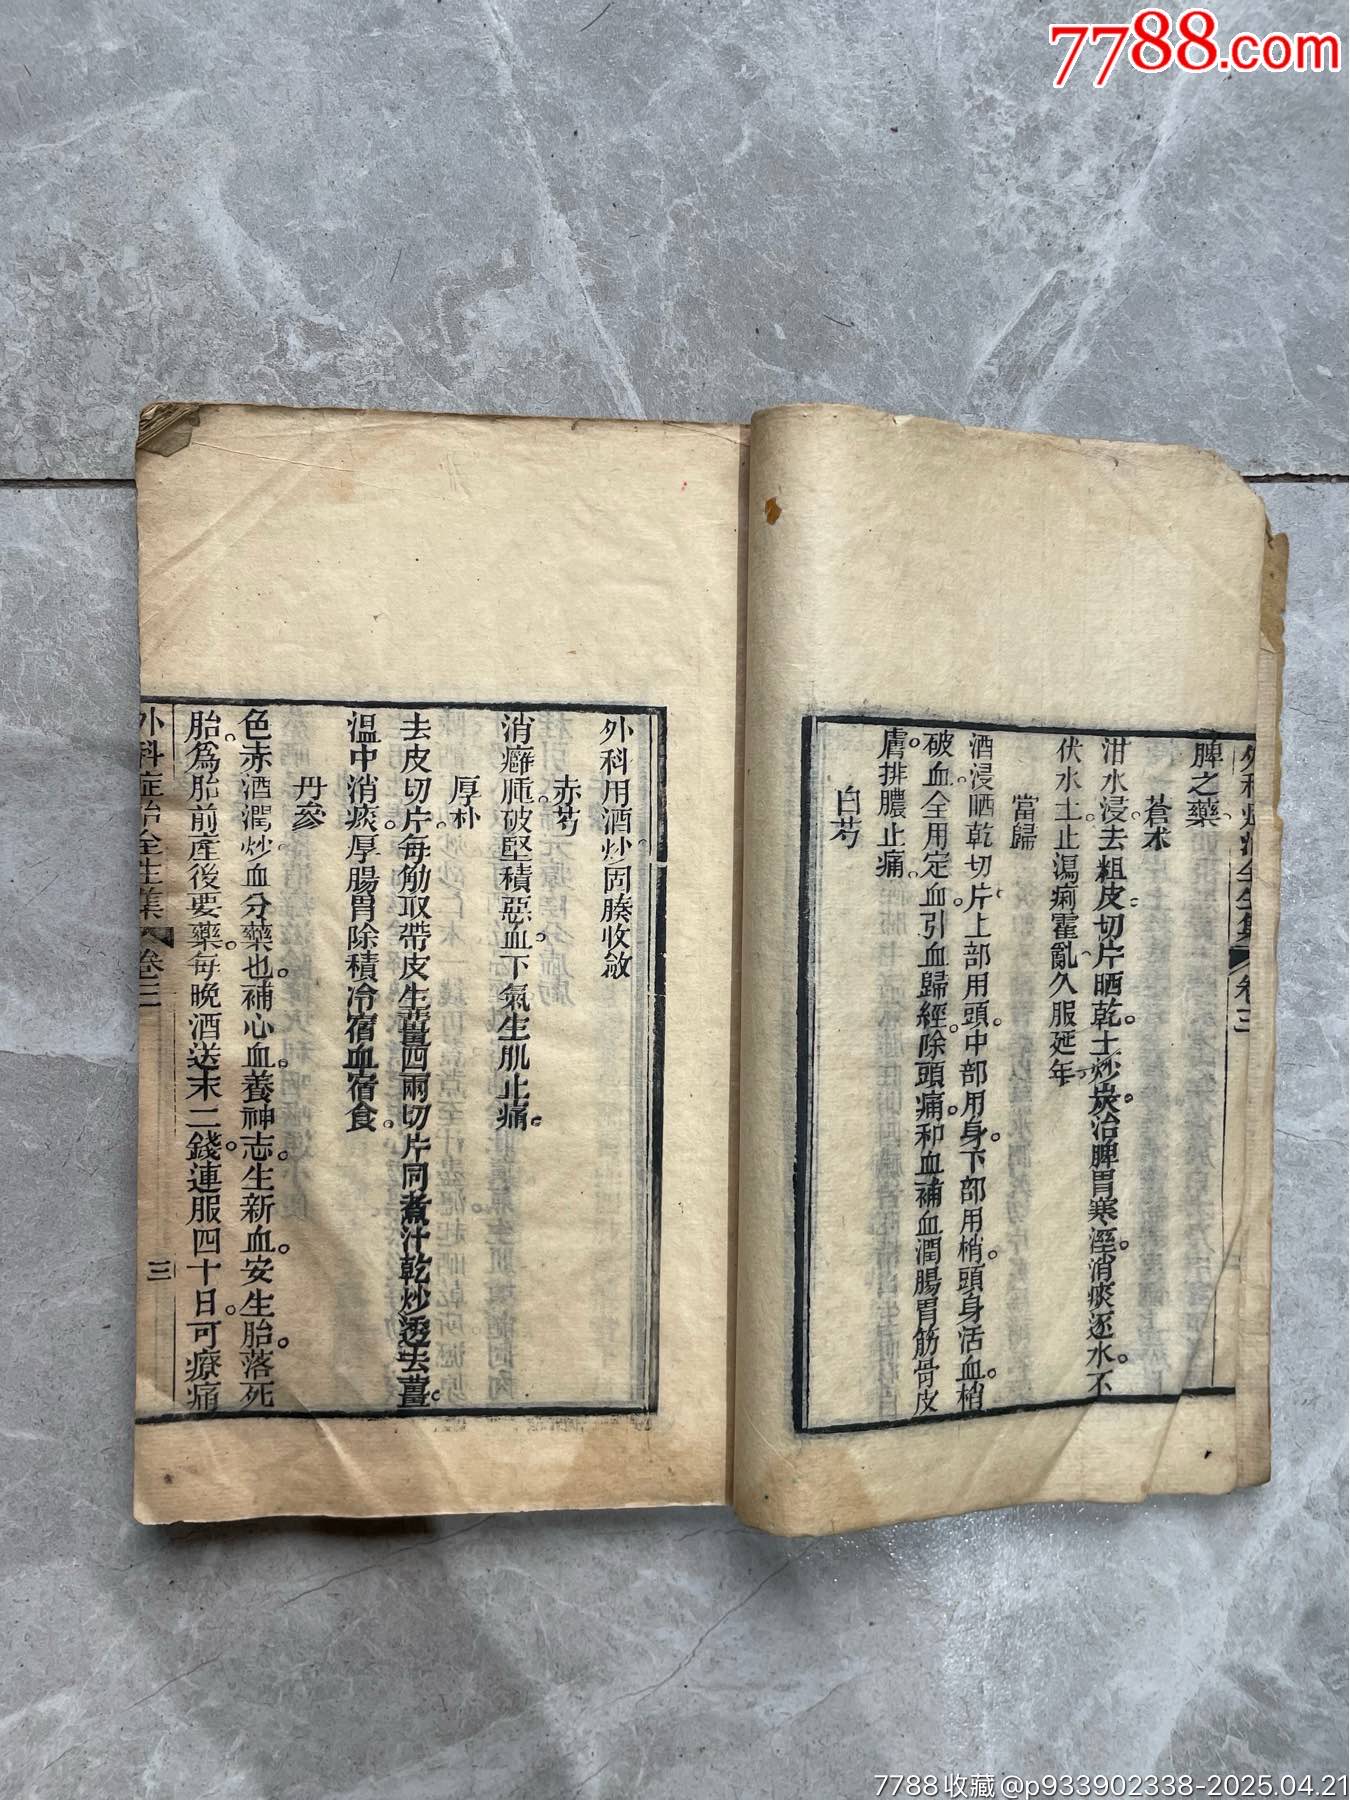 7788.com
脾之藥
蒼朮
泔水浸去粗皮切片晒乾土炒炭治脾胃寒溼消痰逐水不
伏水土止瀉痢霍亂久服延年
當歸
酒浸晒乾切片上部用頭中部用身下部用梢頭身活血梢
破血全用定血引血歸經除頭痛和血補血潤腸胃筋骨皮
膚排膿止痛
白芍
外科用酒炒固腠收斂
赤芍
消癰腫破堅積惡血下氣生肌止痛
厚朴
去皮切片每觔取帶皮生薑四兩切片同煮汁乾炒透去薑
溫中消痰厚腸胃除積冷宿血宿食
丹參
色赤酒潤炒血分藥也補心血養神志生新血安生胎落死
胎為胎前產後要藥每晚酒送末二錢連服四十日可療痛
外科症治全生集 卷三
三
7788收藏@p933902338-2025.04.21